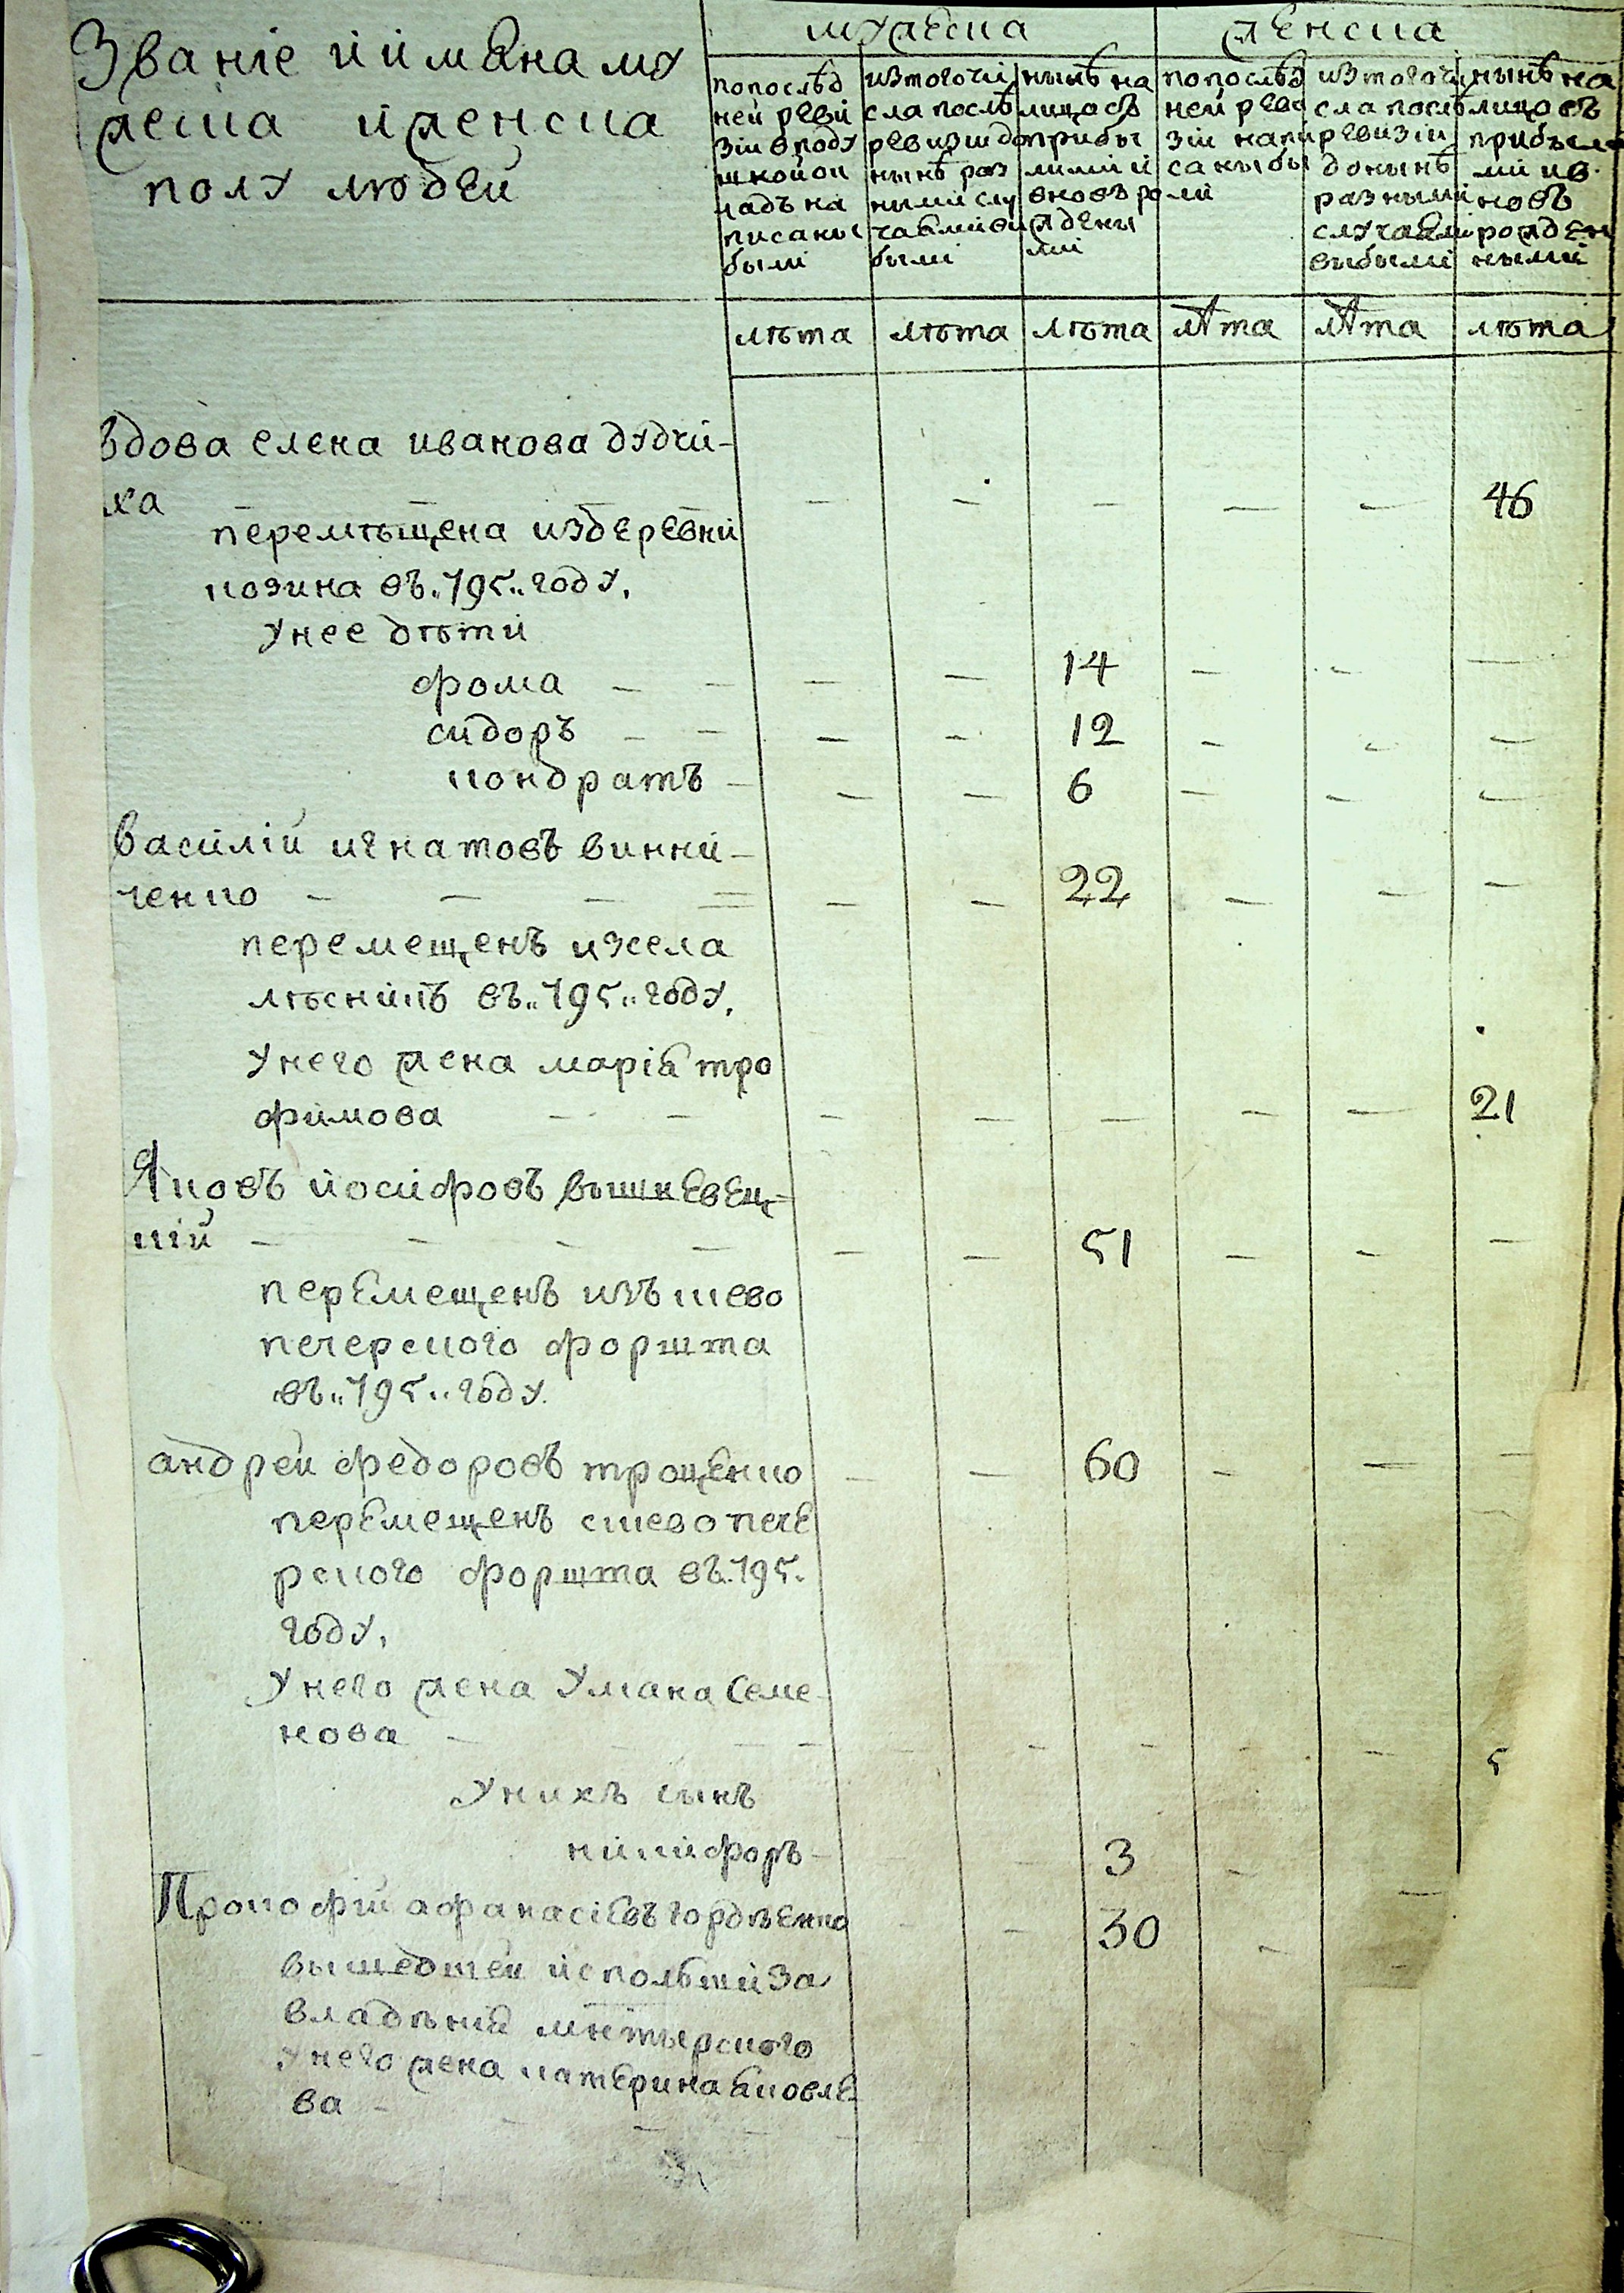 Званіе и имяна му
жеска и женска
полу людей
мужеска
женска
попослѣд
ней реви
зіи вподу
шной ок
ладъ на
писаны
были
изтогочи
сла послѣ
ревизіи до
нынѣ раз
ными слу
чаями вы
были
нынѣ на
лицо съ
прибы
лими и
вновъ ро
жденны
ми
попослѣд
ней реви
зіи напи
саны бы
ли
изтогочи
сла послѣ
ревизіи
донынѣ
разными
случаями
выбыли
нынѣ на
лицо съ
прибылы
ми ив
новъ
рожден
ными
лѣта лѣта лѣта лѣта лѣта лѣта
Вдова елена иванова дудчи-
ха - - - - - 46
перемѣщена издеревни
козина въ „795„ году,
унее дѣти
фома - - - - 14 - - -
сидоръ - - - - 12 - - -
кондратъ - - - 6 - - -
василій игнатовъ винни-
ченко - - - = - - 22 - - -
перемещенъ изсела
лѣсникъ въ „795„ году,
унего жена марія тро
фимова - - - - - - - 21
Яковъ йосифовъ вышневец-
кій - - - - - - 51 - - -
перемещенъ изъ киево
печерского форшта
въ „795„ году.
андрей федоровъ трощенко - - 60 - - -
перемещенъ скиево пече
рского форшта въ „795„
году,
унего жена Улиана Семе-
нова - - - - - - - - 5
унихъ сынъ
никифоръ - - - 3 -
Прокофій афанасіевъ гордѣенко - - 30 - -
вышедшей исполши за
владѣнія мнтырского
унего жена катерина яковле
ва - - - -